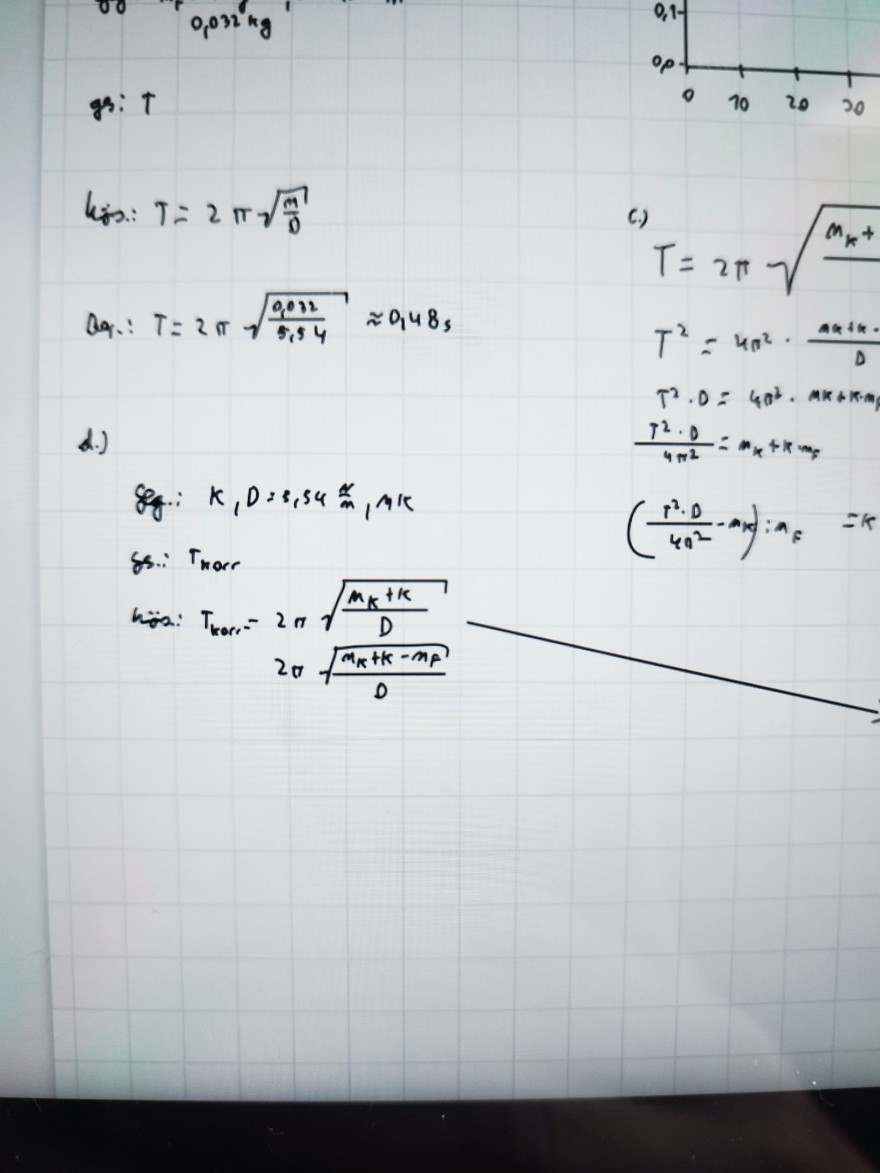 0,032 kg
gs: T
Lös.: T = 2 π √(m/D)
T = 2 π √(0,032/5,54) ≈ 0,48 s
d.)
geg.: K, D = 5,54 N/m, mK
gs.: Tkorr
Lös.: Tkorr = 2 π √((mK + K)/D)
2π √((mK + K - mF)/D)
0,1
0,0
0 10 20 30
c.)
T = 2π √(mK +
T² = 4π² · (mK + K ·)/D
T² · D = 4π² · mK + K · mF
(T² · D)/(4π²) = mK + K · mF
((T² · D)/(4π²) - mK) : mF = K